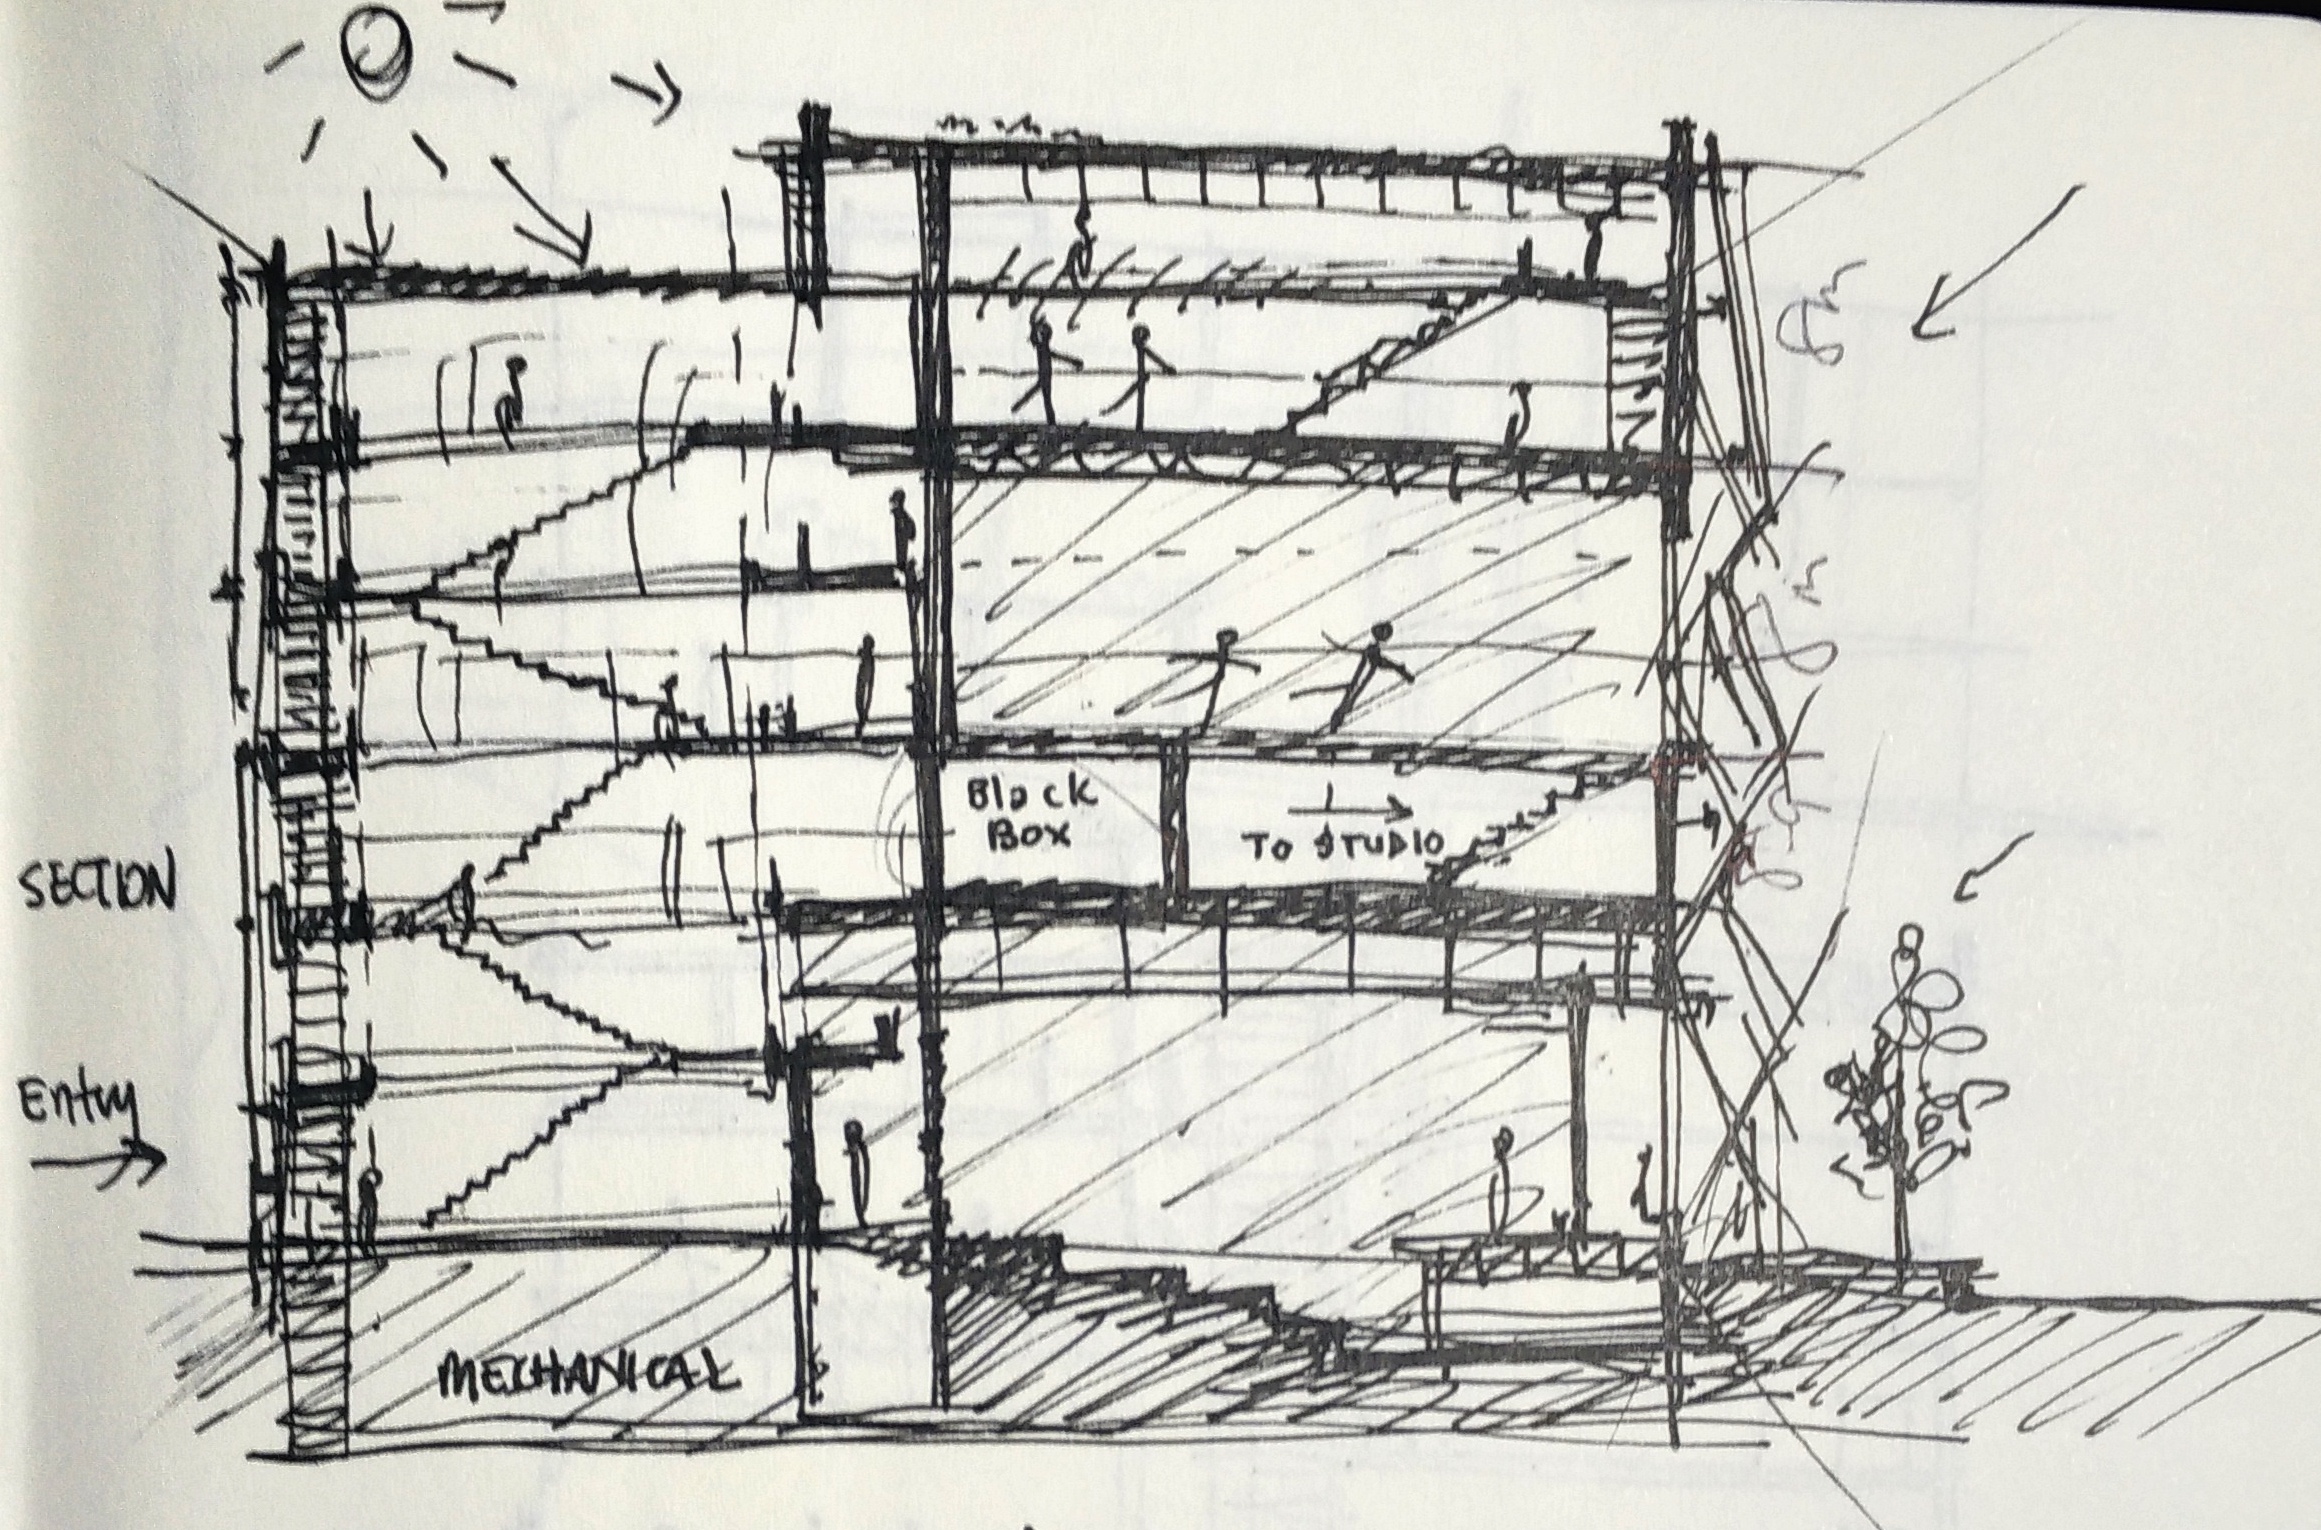 Black
Box
TO STUDIO
SECTION
Entry
MECHANICAL